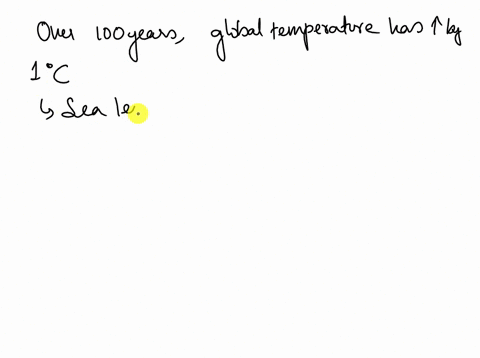 Over 100 years, global temperature has ↑ by
1°C
↳ Sea le